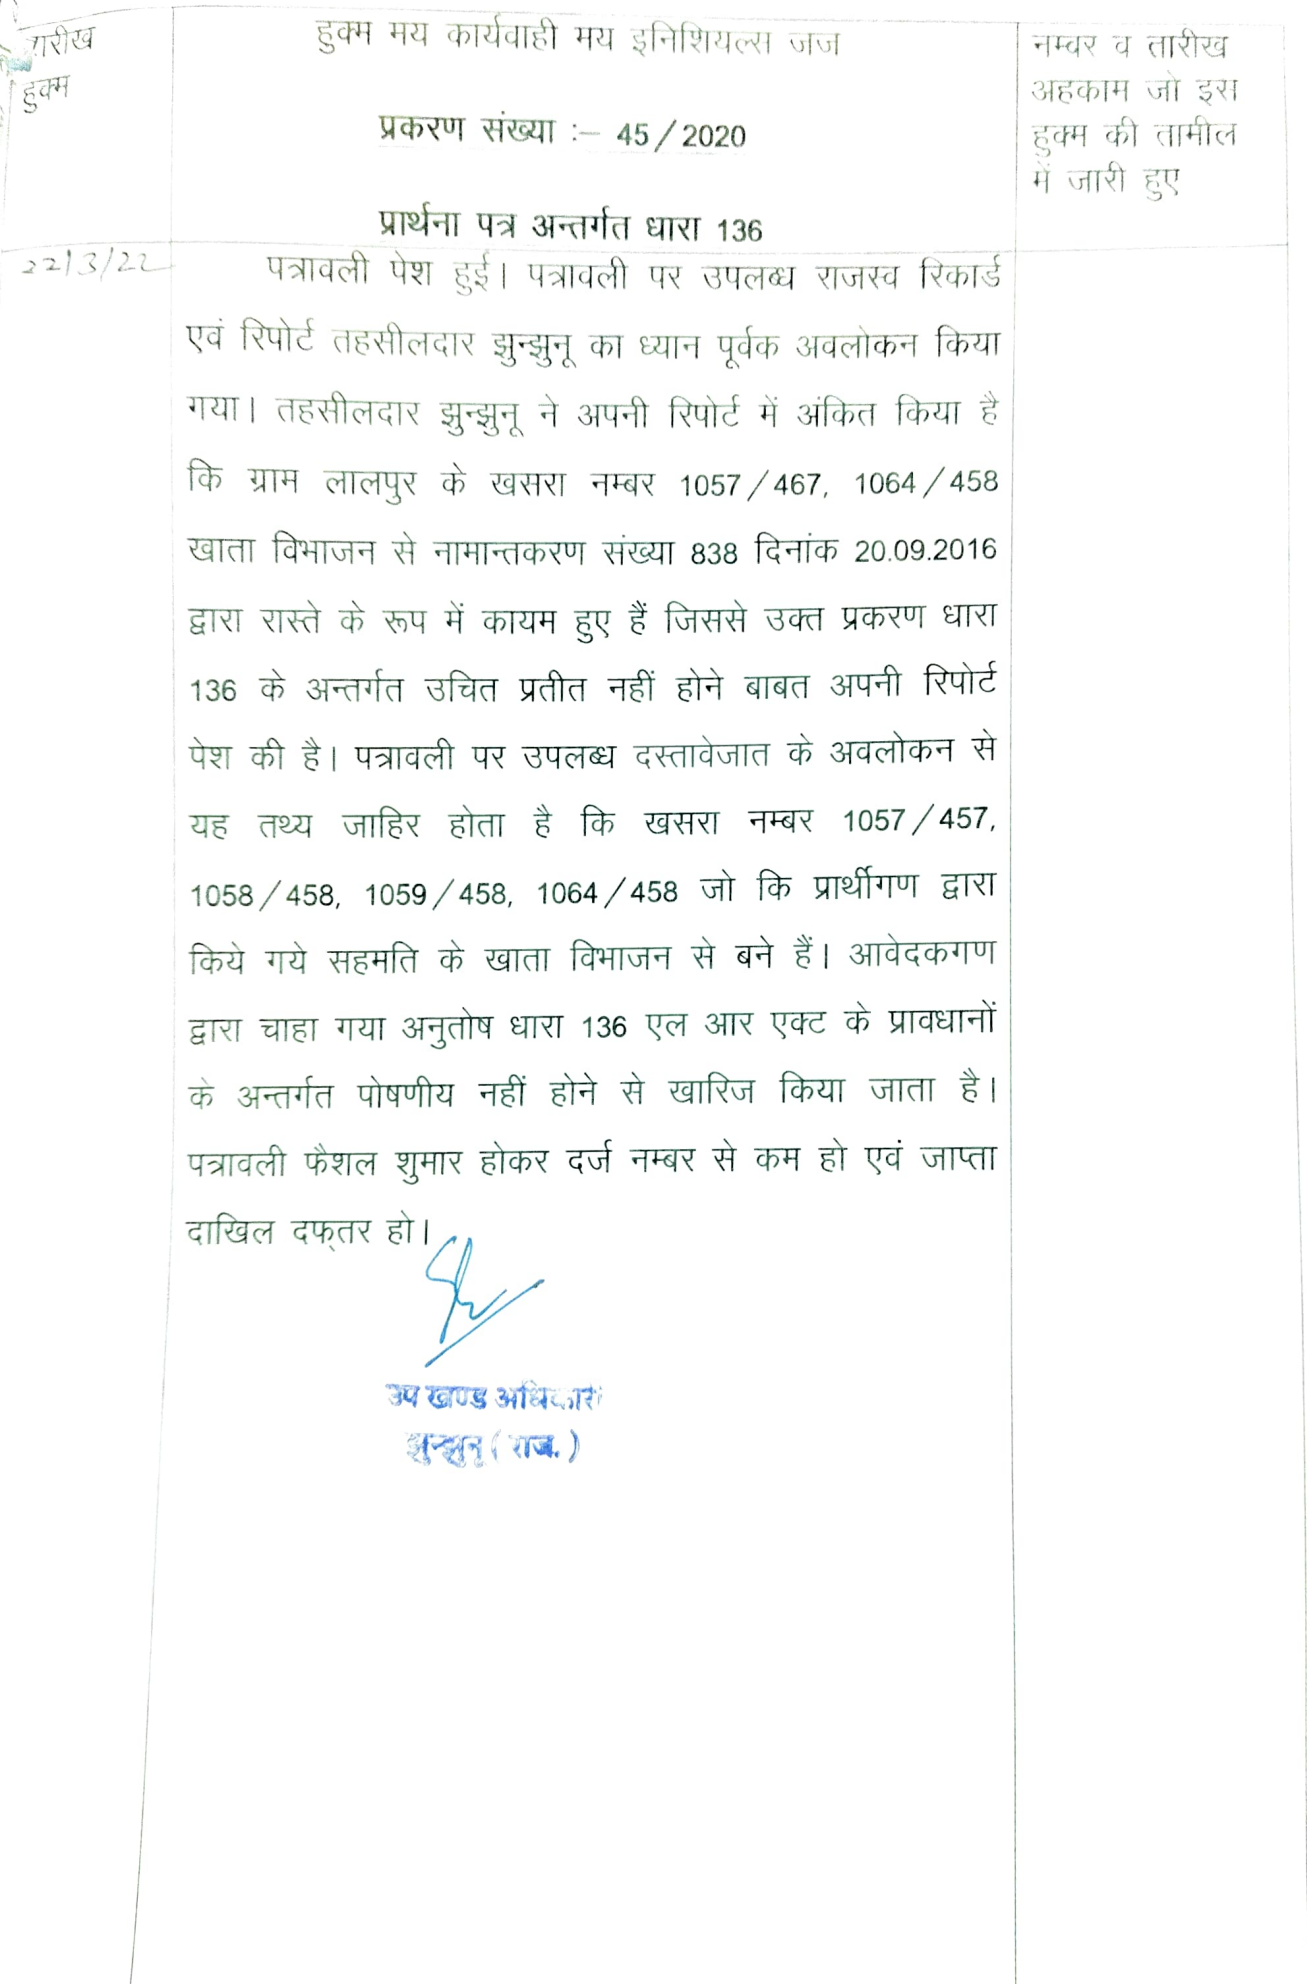 तारीख
हुक्म
हुक्म मय कार्यवाही मय इनिशियल्स जज
प्रकरण संख्या :– 45/2020
प्रार्थना पत्र अन्तर्गत धारा 136
नम्वर व तारीख
अहकाम जो इस
हुक्म की तामील
में जारी हुए
22/3/22
पत्रावली पेश हुई। पत्रावली पर उपलब्ध राजस्व रिकार्ड
एवं रिपोर्ट तहसीलदार झुन्झुनू का ध्यान पूर्वक अवलोकन किया
गया। तहसीलदार झुन्झुनू ने अपनी रिपोर्ट में अंकित किया है
कि ग्राम लालपुर के खसरा नम्बर 1057/467, 1064/458
खाता विभाजन से नामान्तकरण संख्या 838 दिनांक 20.09.2016
द्वारा रास्ते के रूप में कायम हुए हैं जिससे उक्त प्रकरण धारा
136 के अन्तर्गत उचित प्रतीत नहीं होने बाबत अपनी रिपोर्ट
पेश की है। पत्रावली पर उपलब्ध दस्तावेजात के अवलोकन से
यह तथ्य जाहिर होता है कि खसरा नम्बर 1057/457,
1058/458, 1059/458, 1064/458 जो कि प्रार्थीगण द्वारा
किये गये सहमति के खाता विभाजन से बने हैं। आवेदकगण
द्वारा चाहा गया अनुतोष धारा 136 एल आर एक्ट के प्रावधानों
के अन्तर्गत पोषणीय नहीं होने से खारिज किया जाता है।
पत्रावली फैशल शुमार होकर दर्ज नम्बर से कम हो एवं जाप्ता
दाखिल दफ्तर हो।
उप खण्ड अधिकारी
झुन्झुनू (राज.)